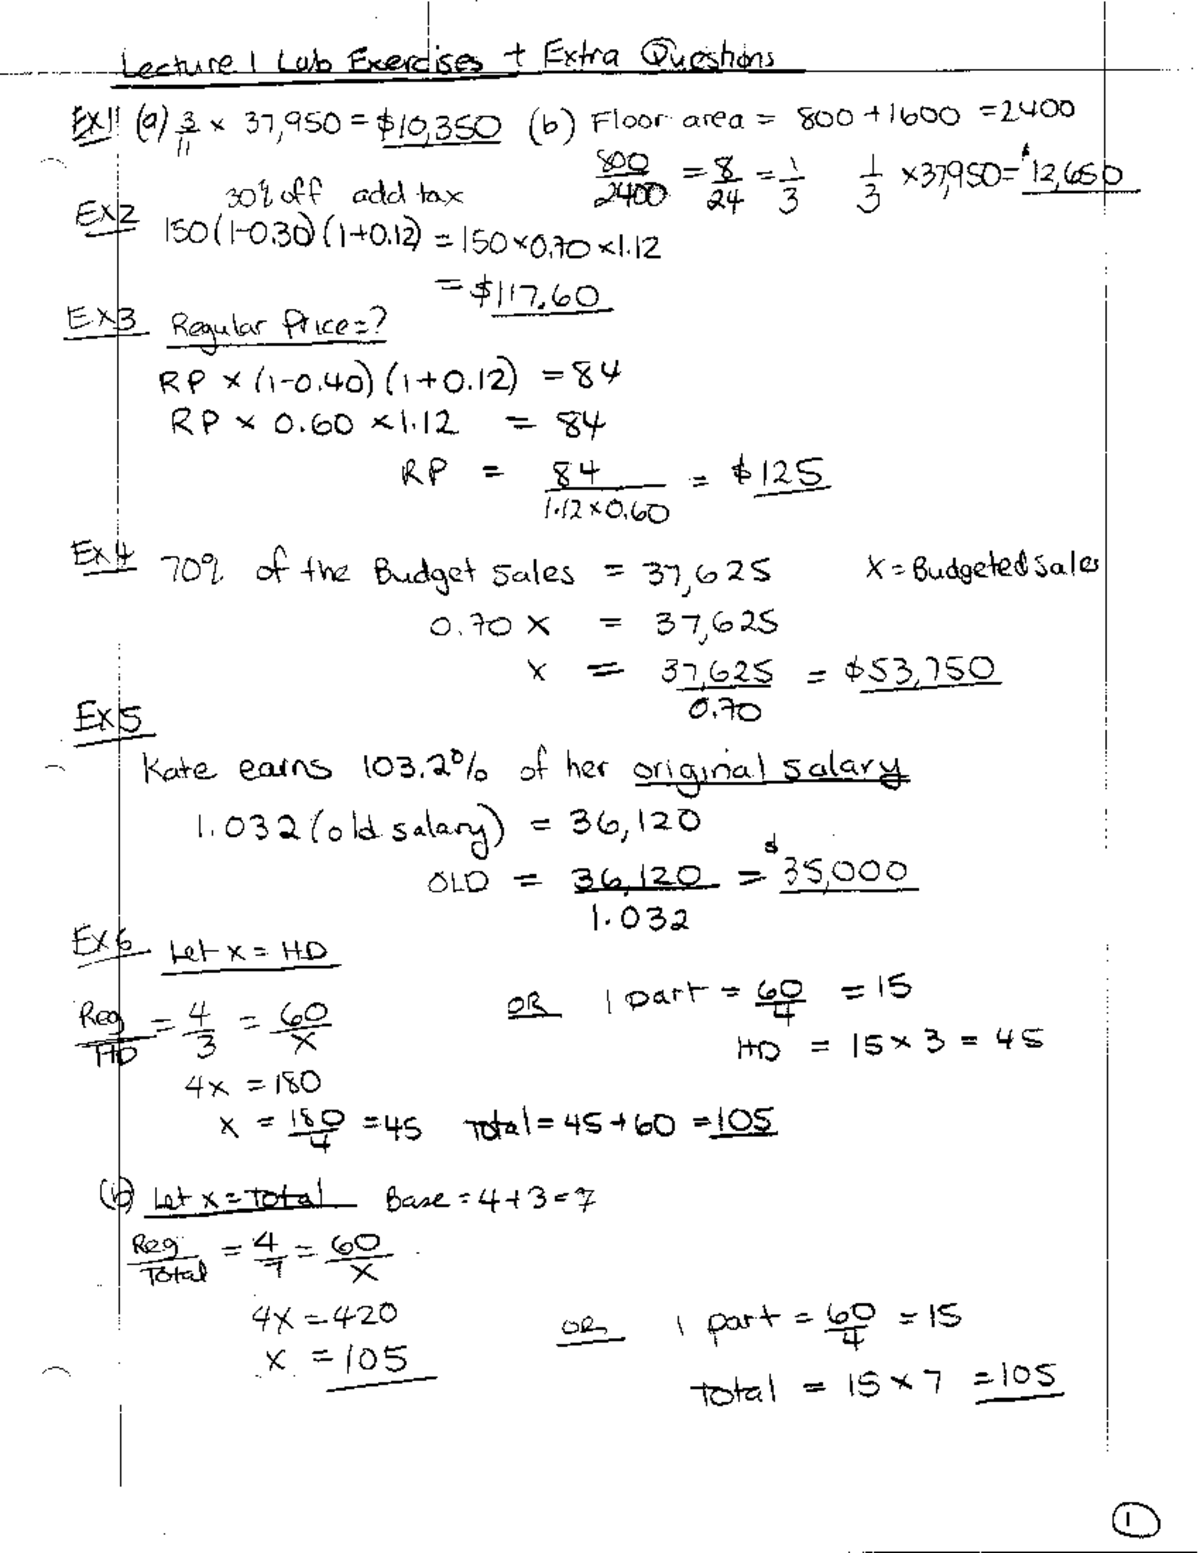 Lecture 1 Lab Exercises + Extra Questions
Ex1! (a) 3/11 × 37,950 = $10,350 (b) Floor area = 800 + 1600 = 2400
800/2400 = 8/24 = 1/3 1/3 × 37,950 = $12,650
30% off add tax
Ex2 150(1-0.30)(1+0.12) = 150 × 0.70 × 1.12
= $117.60
Ex3 Regular Price = ?
RP × (1-0.40)(1+0.12) = 84
RP × 0.60 × 1.12 = 84
RP = 84/1.12×0.60 = $125
Ex4 70% of the Budget Sales = 37,625 X = Budgeted Sales
0.70 X = 37,625
X = 37,625/0.70 = $53,750
Ex5
Kate earns 103.2% of her original salary
1.032 (old salary) = 36,120
OLD = 36,120/1.032 = $35,000
Ex6 Let x = HD
Reg/HD = 4/3 = 60/x OR 1 part = 60/4 = 15
HD = 15 × 3 = 45
4x = 180
x = 180/4 = 45 Total = 45 + 60 = 105
(b) Let x = Total Base = 4 + 3 = 7
Reg/Total = 4/7 = 60/x
4x = 420 OR 1 part = 60/4 = 15
x = 105
Total = 15 × 7 = 105
1